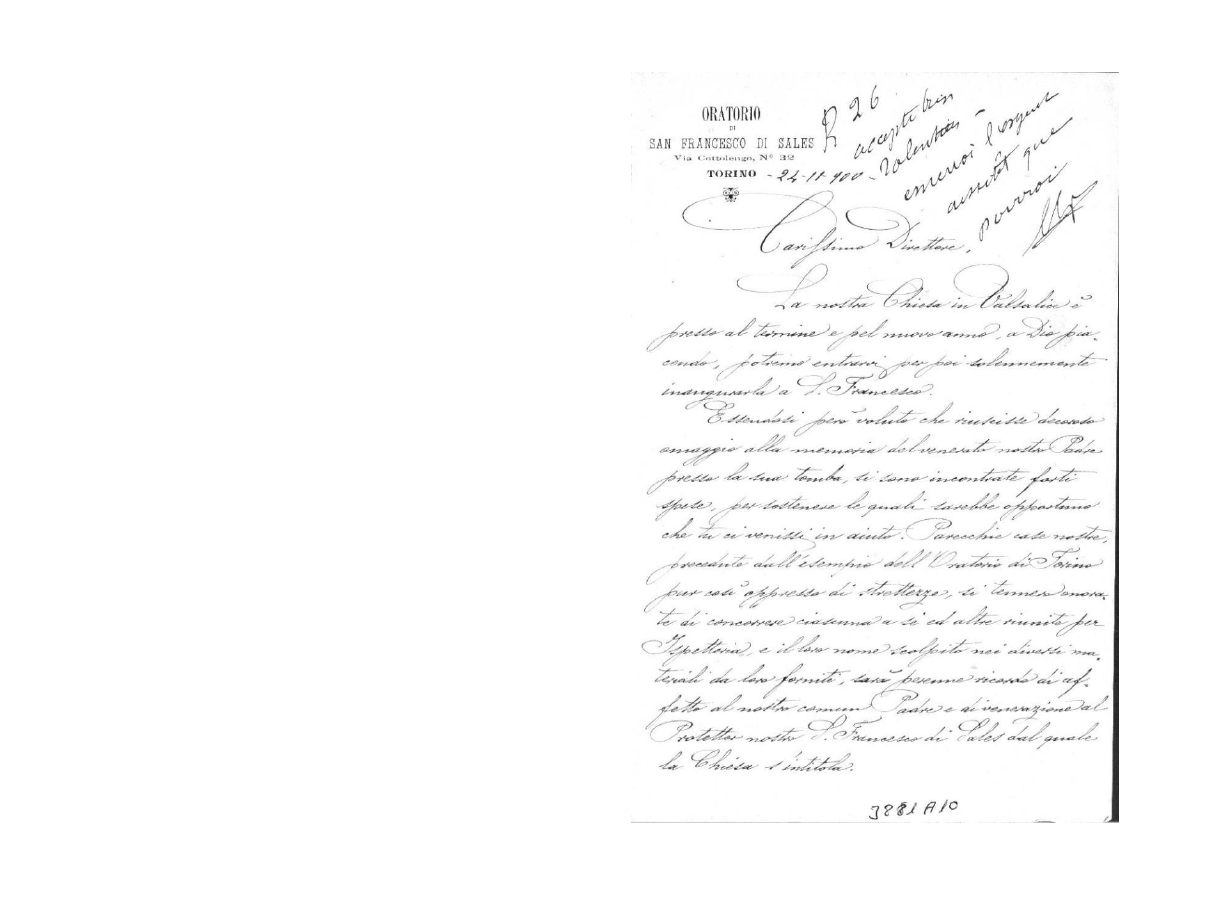 ORATORIO
DI
SAN FRANCESCO DI SALES
Via Cottolengo, Nº 32
TORINO - 24-11-900 -
R 26
accepte très
volontiers -
enverrai l'argent
aussitôt que
pourrai
Carissimo Direttore,
La nostra Chiesa in Valsalice è
presso al termine e pel nuovo anno, a Dio pia-
cendo, potremo entrarvi per poi solennemente
inaugurarla a S. Francesco.
Essendosi però voluto che riuscisse decoroso
omaggio alla memoria del venerato nostro Padre
presso la sua tomba, si sono incontrate forti
spese, per sostenere le quali sarebbe opportuno
che tu ci venissi in aiuto. Parecchie case nostre,
precedute dall'esempio dell'Oratorio di Torino
pur così oppresso di strettezze, si tennero onora-
te di concorrere ciascuna a sè ed altre riunite per
Ispettoria, e il loro nome scolpito nei diversi ma-
teriali da loro forniti, sarà perenne ricordo di af-
fetto al nostro comun Padre e di venerazione al
Protettor nostro S. Francesco di Sales dal quale
la Chiesa s'intitola.
3881 A10